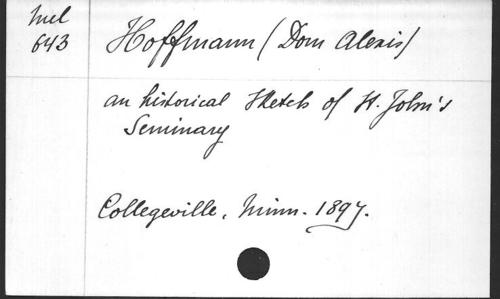 Mel
643
Hoffmann (Dom Alexis)
an historical Sketch of St. John's
Seminary
Collegeville, Minn. 1897.